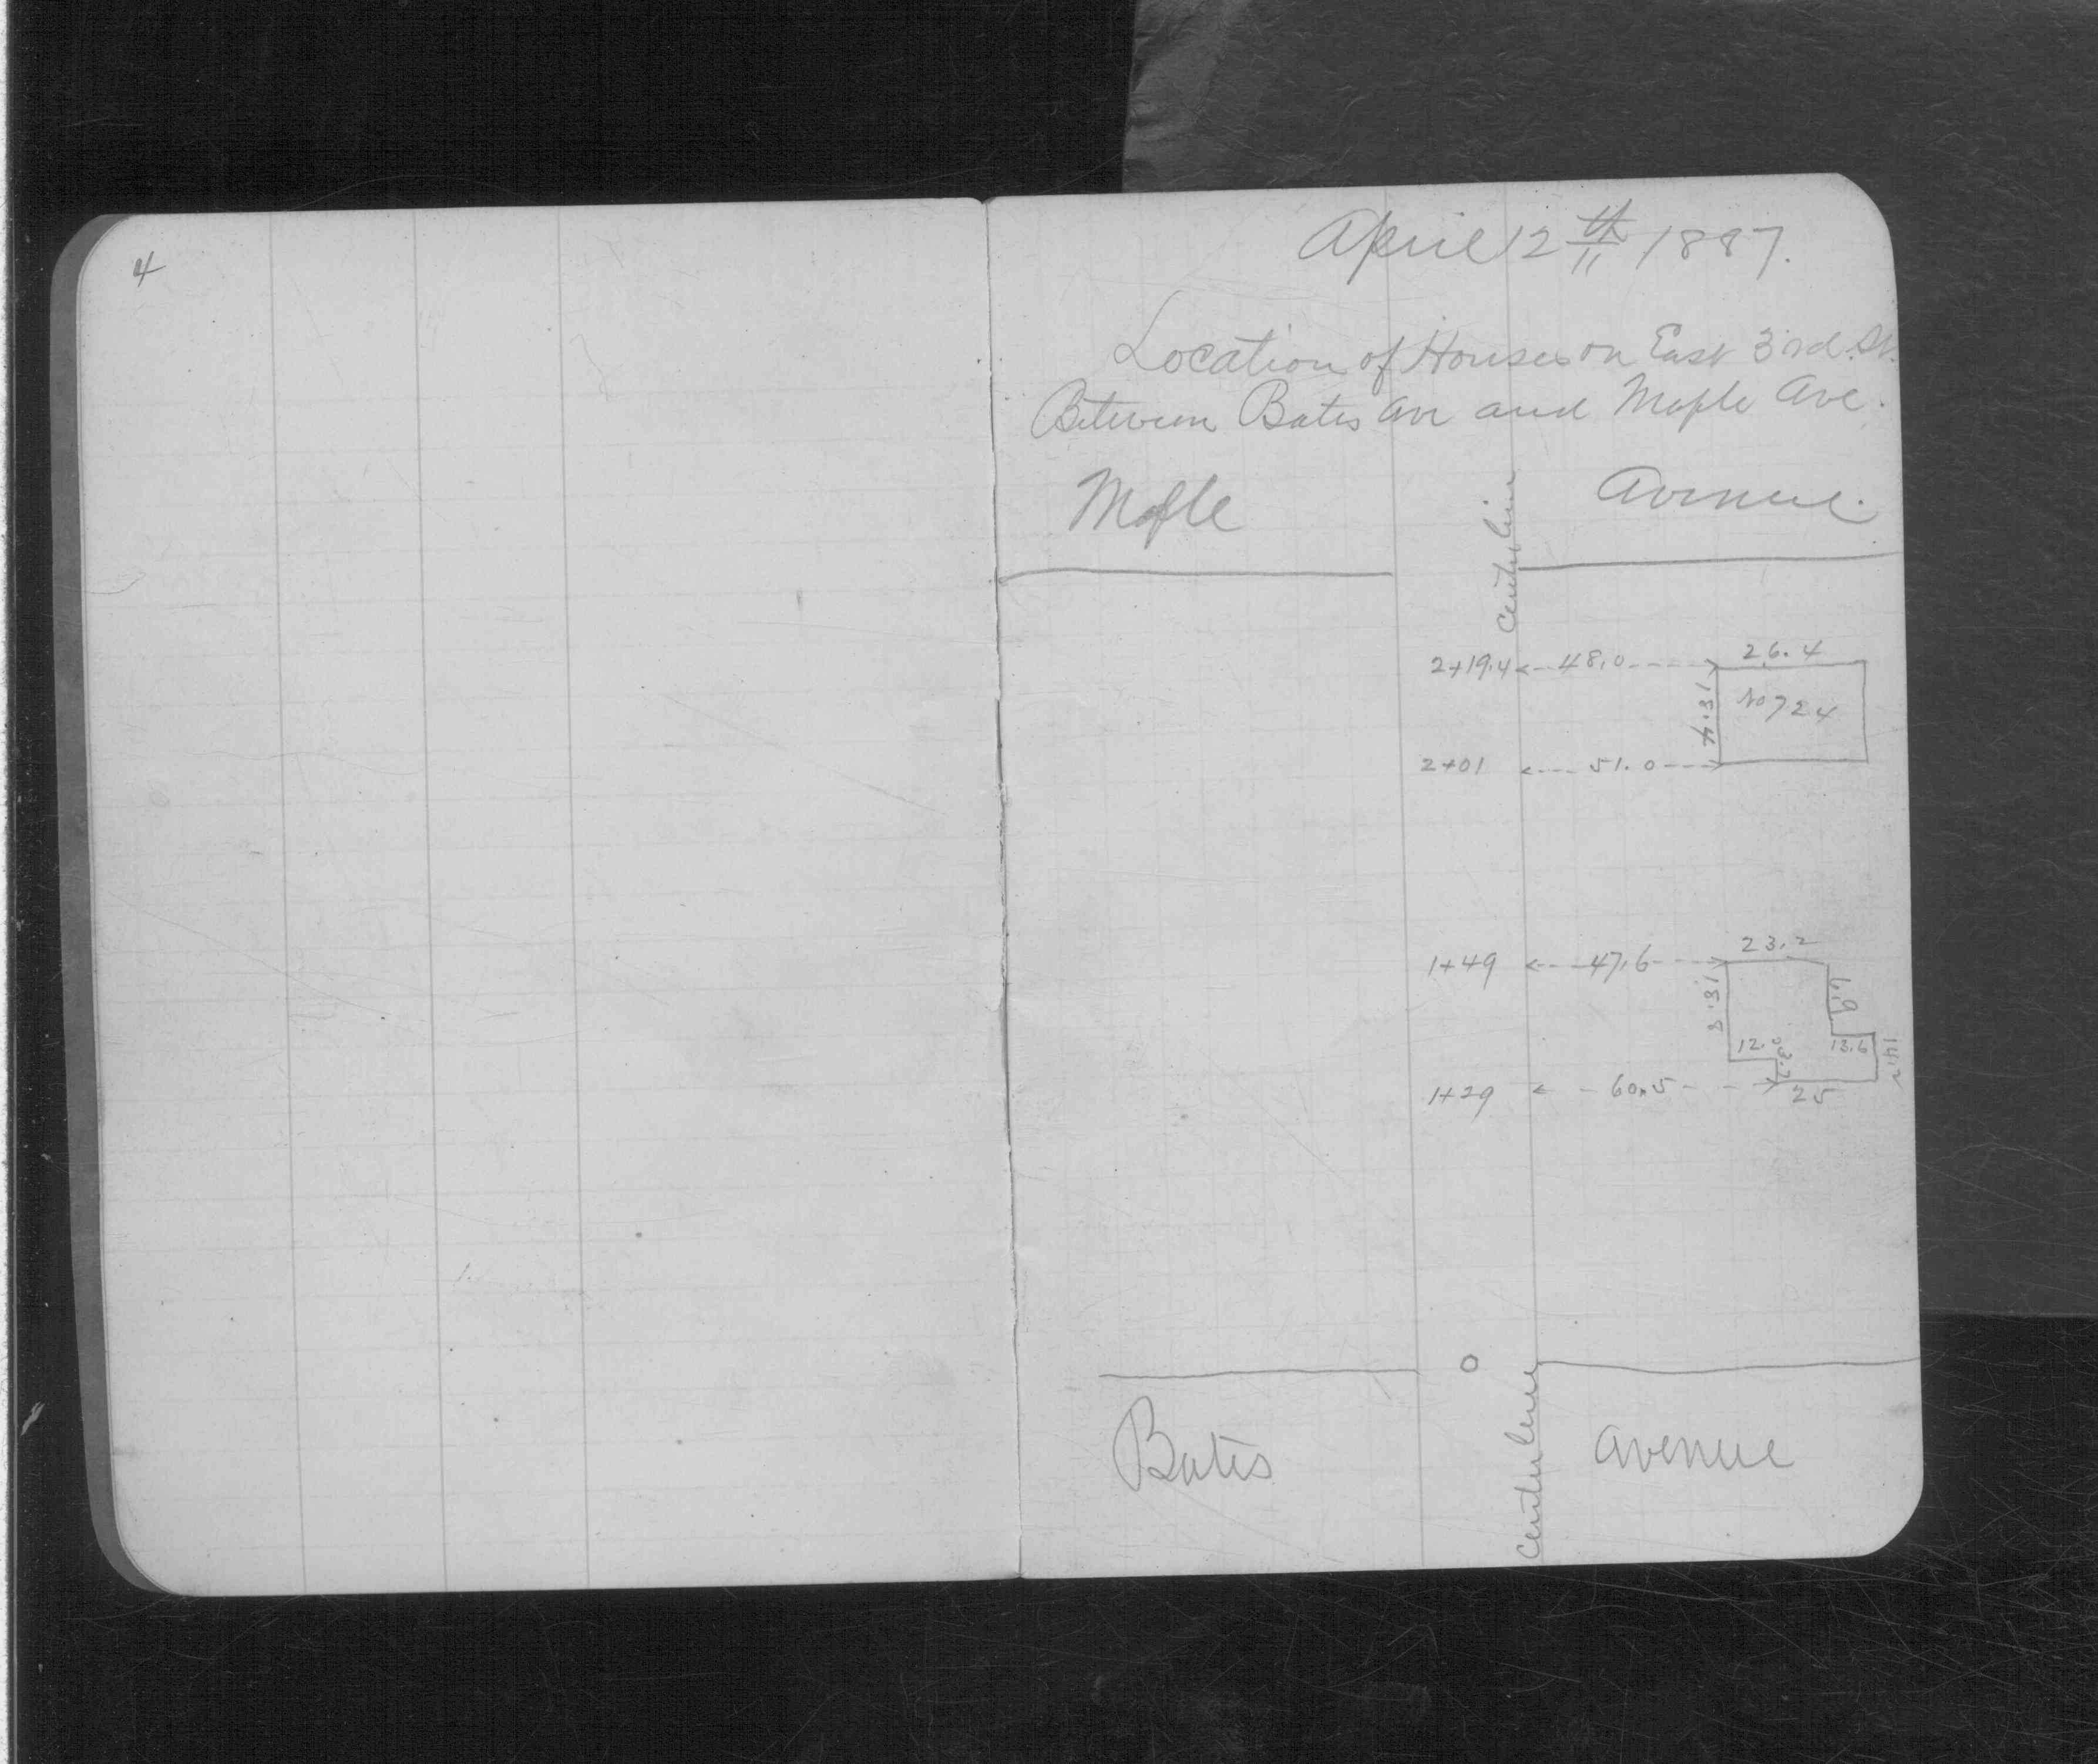 4
April 12th 1887.
Location of Houses on East 3rd. St.
Between Bates Ave and Maple Ave.
Maple Avenue.
Center line
2+19.4 48.0 26.4
18.4 No 724
2+01 51.0
1+49 47.6 23.2
18.8 6.9
12.0 3.2 13.6 14.2
1+29 60.5 25
0
Bates Avenue
Center line